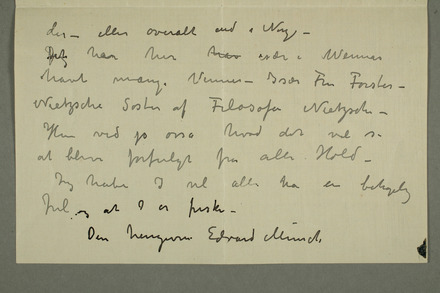 der – eller overalt end i Norge –
Jeg har her har især i Weimar
havt mange Venner – Især Fru Förster –
Nietzsche Søster af Filosofen Nietzsche –
Hun ved jo også hvad det vil si
at blive forfulgt fra alle Hold –
Jeg håber I vil alle ha en behagelig
Jul og at I er friske –
Din hengivne Edvard Munch